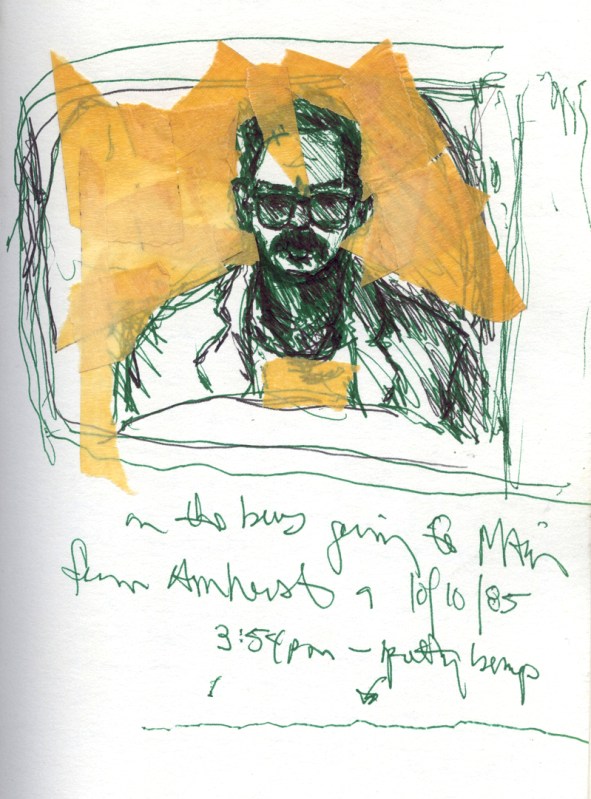 on the bus going to MAin
from Amherst 9 10/10/85
3:54 pm –